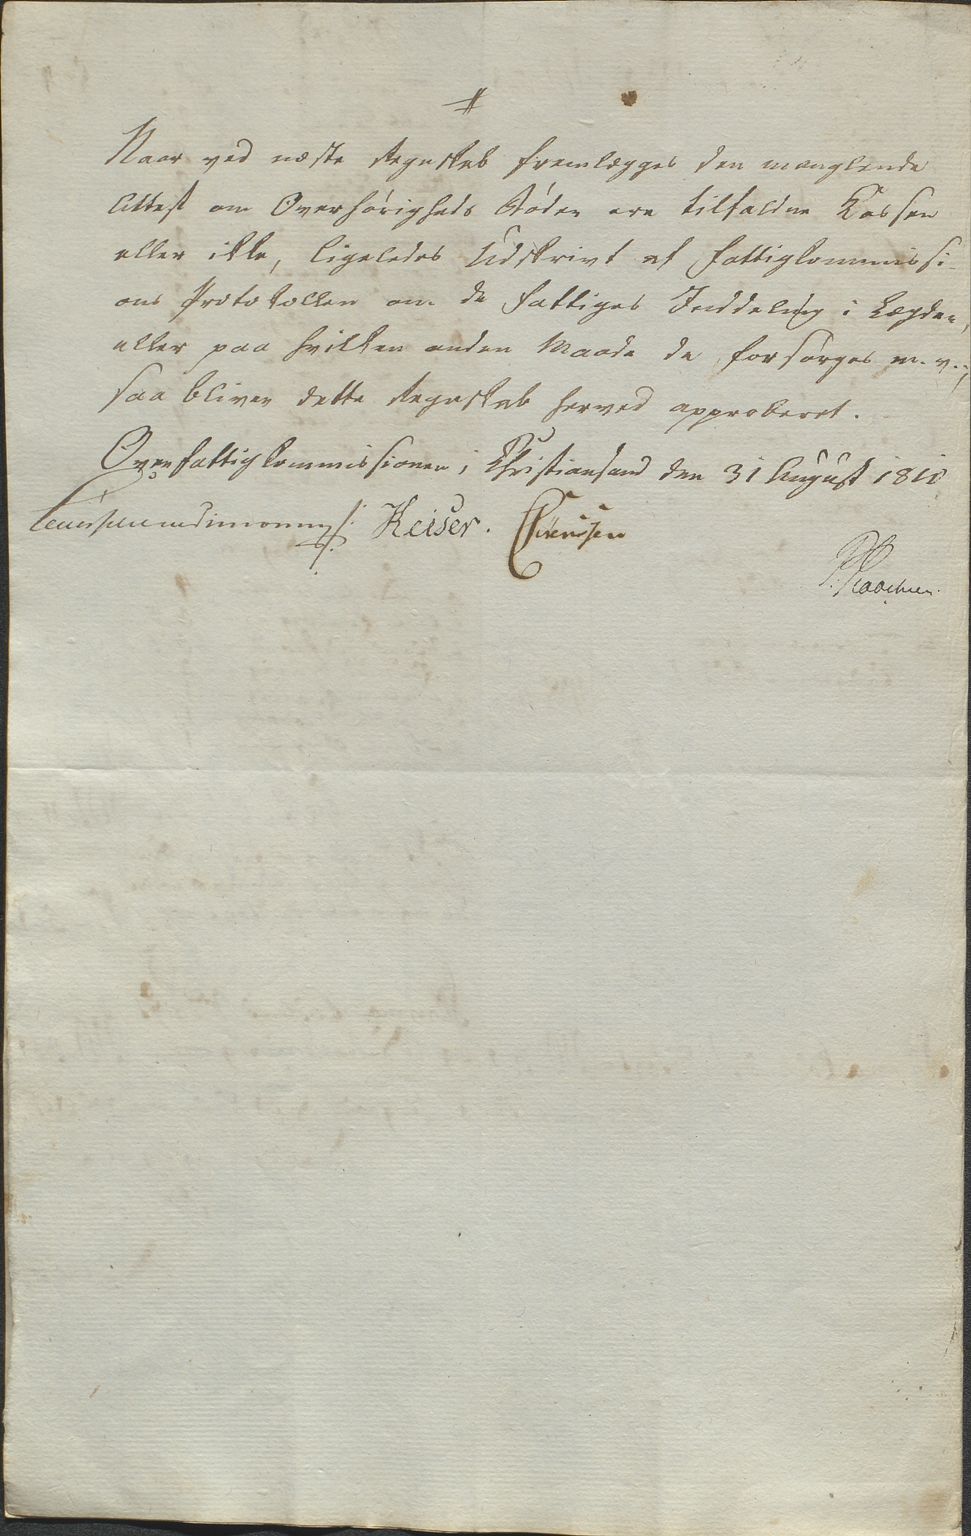 Naar ved næste Regnskab fremlægges den manglende
Attest om Overhørigheds Bøder ere tilfaldne Kassen
eller ikke, ligeledes Udskrivt af Fattigkommissi-
ons Protokollen om de Fattiges Inddeling i Lægder,
eller paa hvilken anden Maade de forsørges m. v.,
saa bliver dette Regnskab herved approberet.
Overfattigkommissionen i Christiansand den 31 August 1818
Keiser. Sørenssen